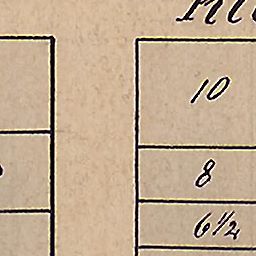 10
8
6½